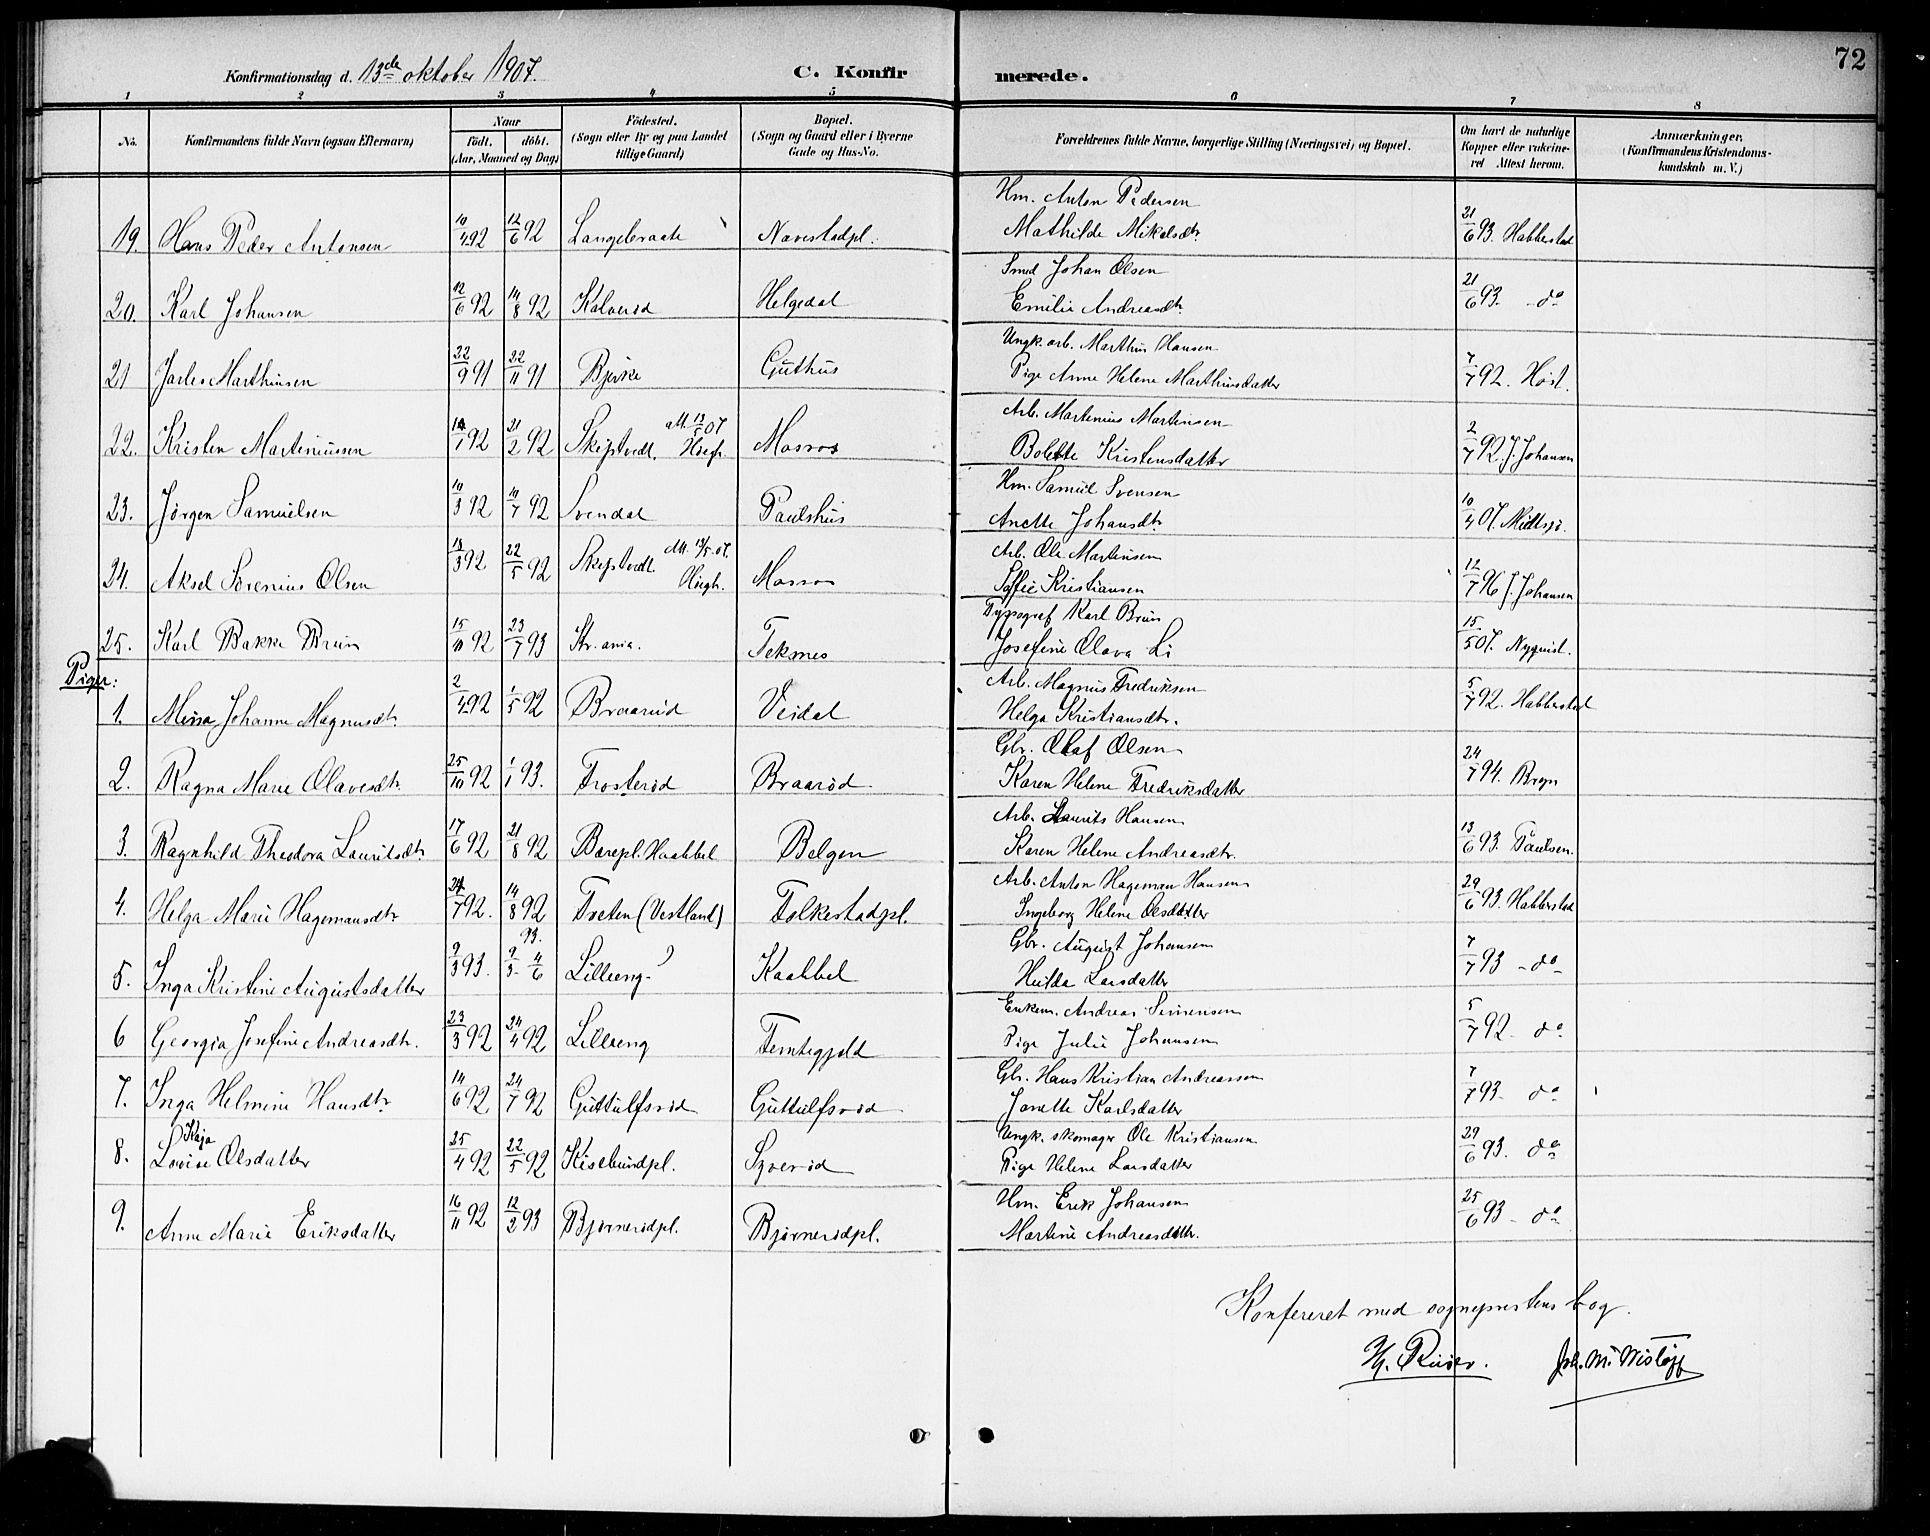 72
Konfirmationsdag d. 13de oktober 1907.
C. Konfirmerede.
1 2 3 4 5 6 7 8
No.
Konfirmandens fulde Navn (ogsaa Efternavn)
Naar
födt. döbt.
(Aar, Maaned og Dag)
Födested.
(Sogn eller By og paa Landet
tillige Gaard)
Bopæl.
(Sogn og Gaard eller i Byerne
Gade og Hus-No.
Forældrenes fulde Navne, borgerlige Stilling (Næringsvei) og Bopæl.
Om havt de naturlige
Kopper eller vaccineret
Attest herom.
Anmærkninger.
(Konfirmandens Kristendomskundskab
m. V.)
19. Hans Peder Antonsen 10/4 92 12/6 92 Langebraate Navestadpl. Hm. Anton Pedersen
Mathilde Mikalsdtr. 21/6 93. Habberstad
20. Karl Johansen 12/6 92 14/8 92 Kolverød Helgedal Smed Johan Olsen
Emilie Andreasdtr. 21/6 93. do
21 Jarles Marthinsen 22/9 91 22/11 91 Bjerke Guthus Ungk. arb. Marthin Hansen
Pige Anne Helene Marthinsdatter 7/7 92. Høst.
22. Kristen Marteniussen 14/1 92 21/2 92 Skiptvedt. Att. 13/5 07 Høegh. Mosros Arb. Martenius Martinsen
Bolette Kristensdatter 2/7 92. J. Johansen
23. Jörgen Samuelsen 10/3 92 10/7 92 Svendal Paulshus Hm. Samuel Svensen
Anette Johansdtr. 10/4 07. Midtsjø.
24. Aksel Sorenius Olsen 13/3 92 22/5 92 Skiptvedt. Att. 13/5. 07. Høegh. Mosros Arb. Ole Martinsen
Soffie Kristiansen 12/7 96 J. Johansen
25. Karl Bakke Brun 15/10 92 23/7 93 Kr.ania. Teknes Typograf Karl Brun
Josefine Olava Li 15/5 07. Nyquist.
Piger:
1. Mina Johanne Magnusdtr. 2/4 92 1/5 92 Braarud Veidal Arb. Magnus Fredriksen
Helga Kristiansdtr. 5/7 92. Habberstad
2. Ragna Marie Olavesdtr. 25/10 92 1/1 93. Trosterød Braarød. Gbr. Olaf Olsen
Karen Helene Fredriksdatter 24/7 94. Bryn
3. Ragnhild Theodora Lauritsdtr. 17/6 92 21/8 92 Barepl. Haabbel Belgen Arb. Laurits Hansen
Karen Helene Andreasdtr. 13/6 93. Paulsen.
4. Helga Marie Hagemansdtr 24/7 92. 14/8 92 Tveten (Vestland) Folkestadpl. Arb. Anton Hageman Hansen
Ingeborg Helene Olsdatter 29/6 93. Habberstad
5. Inga Kristine Augustsdatter 9/3 93. 9/3 - 4/6 93. Lilleeng ? Kaabbel Gbr. August Johansen
Hulda Larsdatter 7/7 93 - do -
6 Georgia Josefine Andreasdtr. 23/3 92 24/4 92 Lilleeng Femtegjeld Enkem. Andreas Simensen
Pige Julie Johansen 5/7 92 - do
7. Inga Helmine Hansdtr 14/6 92 24/7 92 Guttulfsrød Guttulfsrød Gb. Hans Kristian Andreassen
Janette Karlsdatter 7/7 93 - do
8. Kaja Lovise Olsdatter 25/4 92 22/5 92 Kiselundpl. Syverød Ungk. skomager Ole Kristiansen
Pige Helene Larsdatter 29/6 93. do
9. Anne Marie Eriksdatter 16/11 92 12/2 93 Bjørnerødpl. Bjørnerødpl. Hm. Erik Johansen
Martine Andreasdatter. 25/6 93 - do
Konfereret med sogneprestens bog.
Joh. M. Wisløff